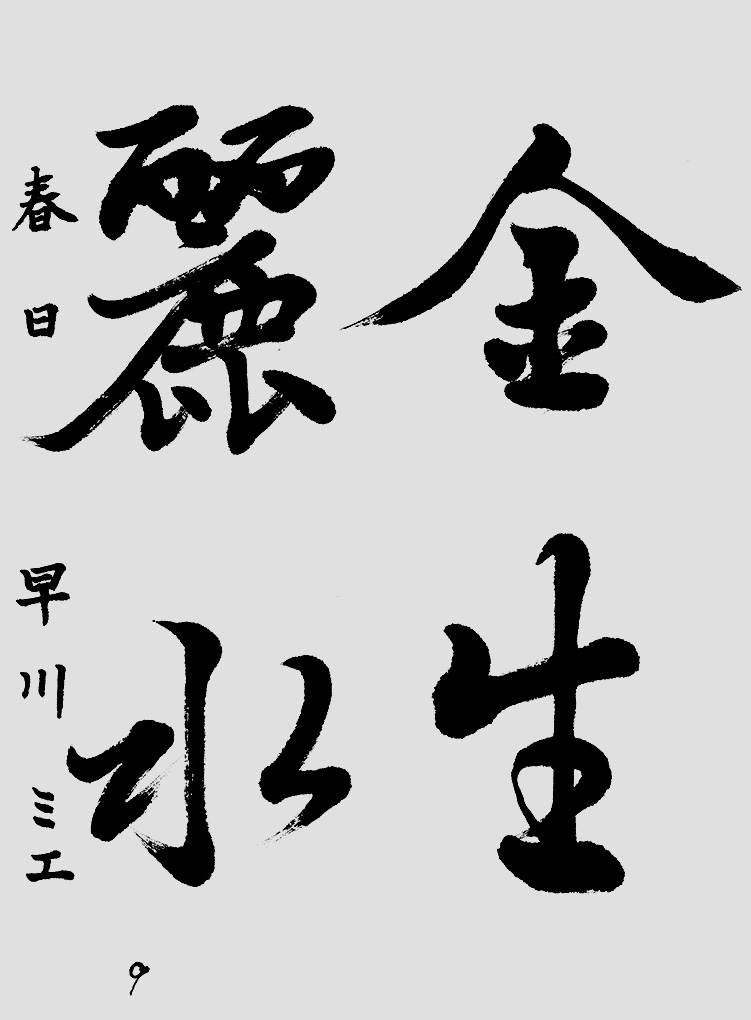 金生
麗水
春日 早川ミエ
9